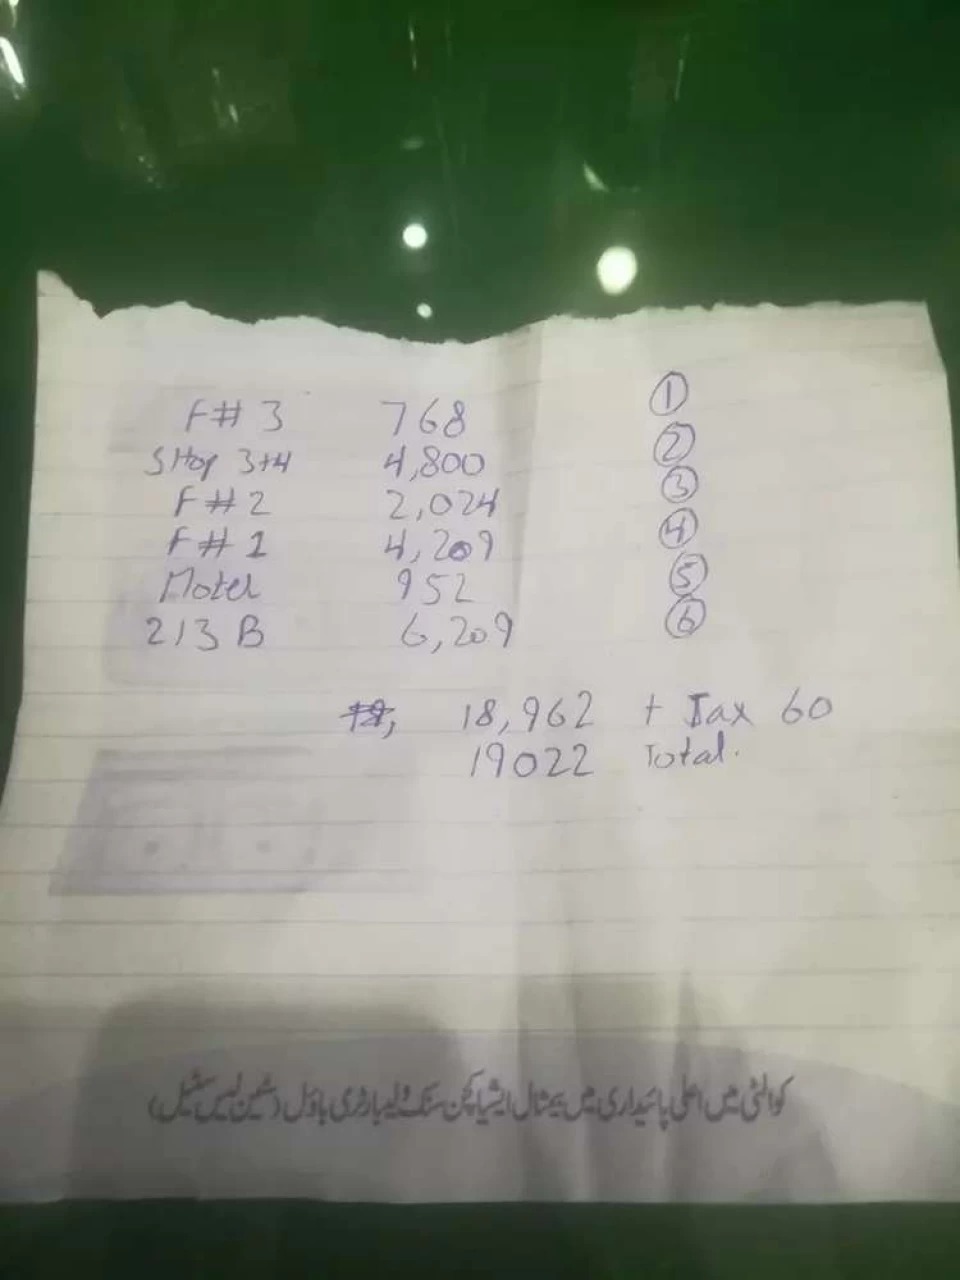 F# 3 768 ①
SHop 3+4 4,800 ②
F# 2 2,024 ③
F# 1 4,209 ④
Motel 952 ⑤
213 B 6,209 ⑥
18,962 + Tax 60
19022 Total.
کوالٹی میں اعلیٰ پائیداری میں بیمثال ایشیا کچن سنک ولیبارٹری باؤل (سٹین لیس سٹیل)